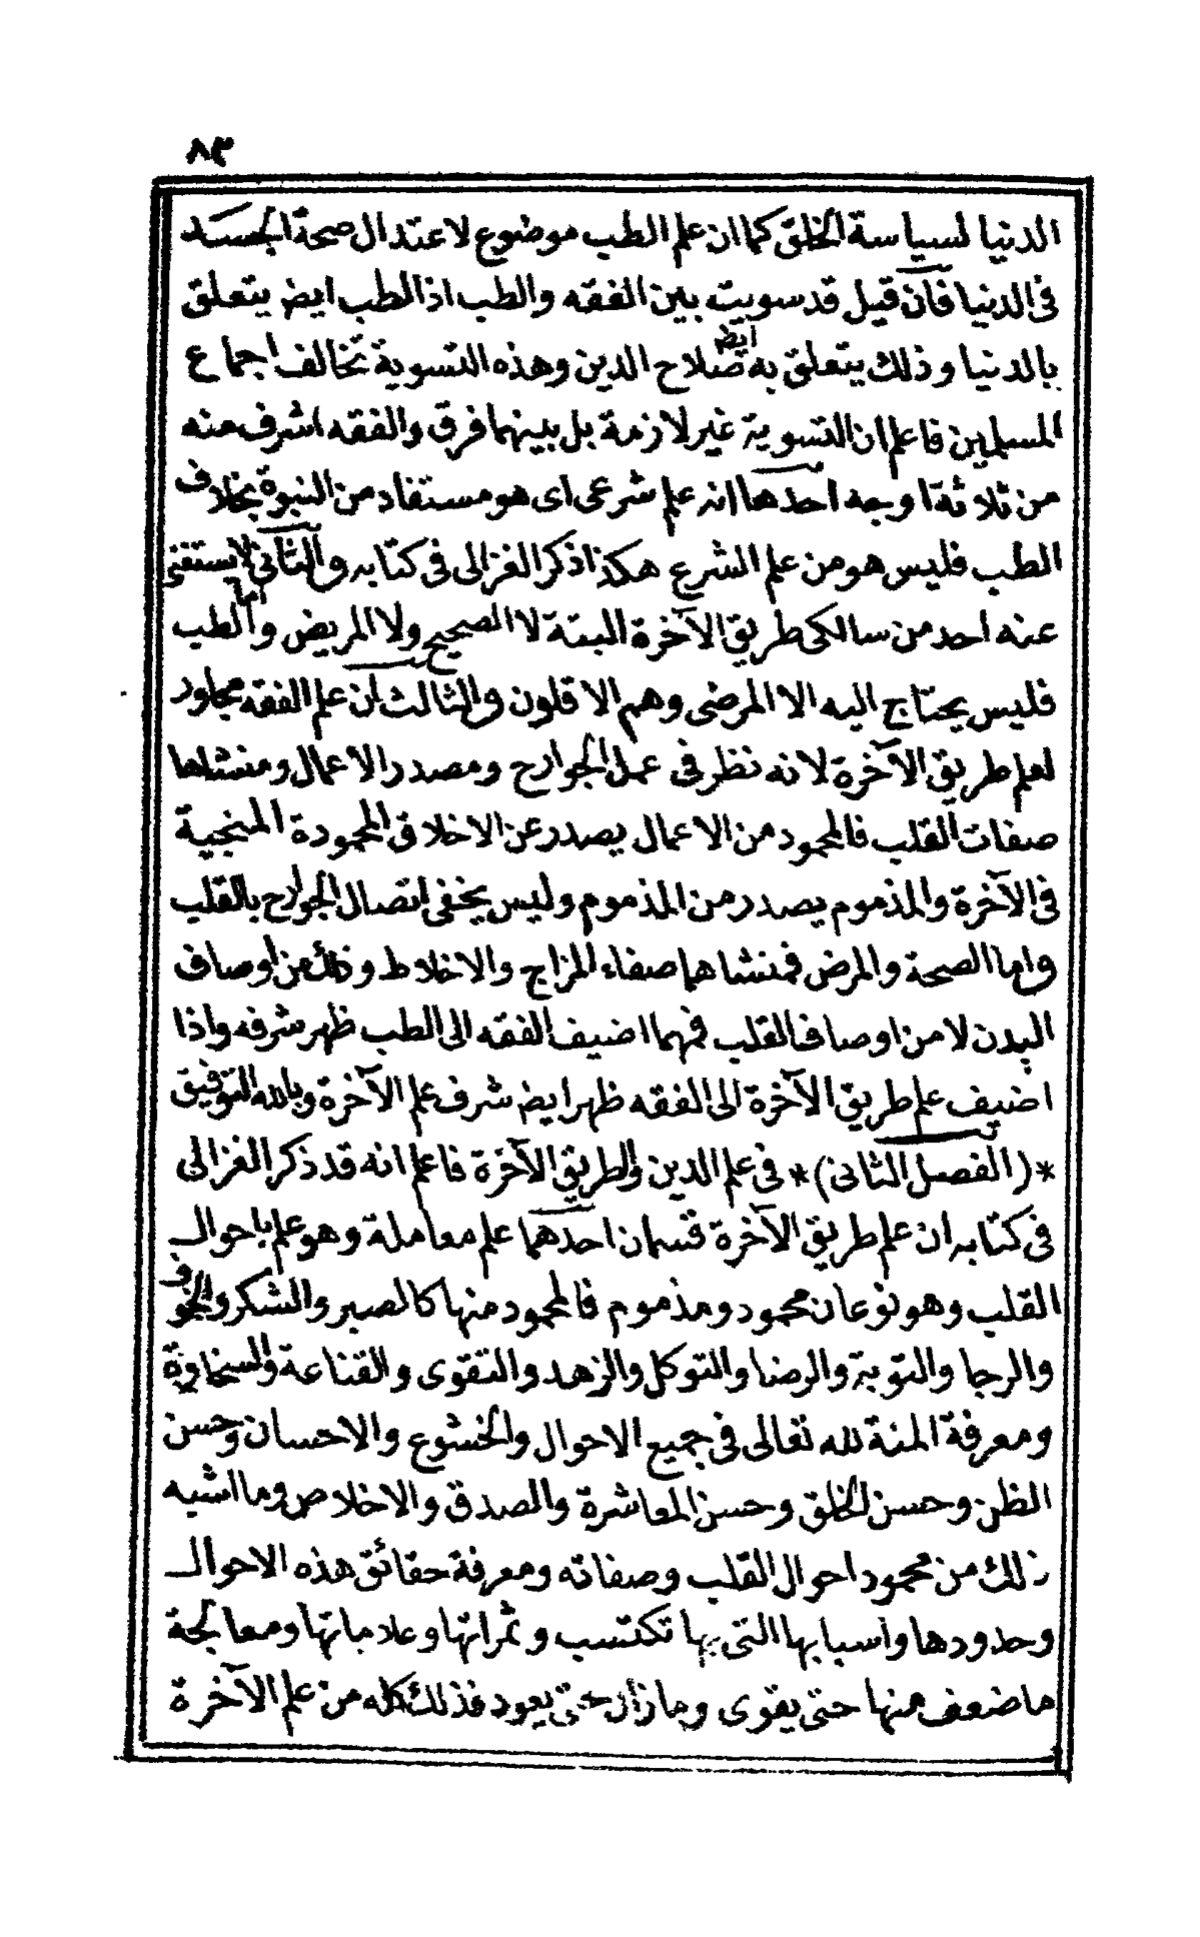 ٨٣
الدنيا لسياسة الخلق كما ان علم الطب موضوع لاعتدال صحة الجسد
فى الدنيا فان قيل قد سويت بين الفقه والطب اذ الطب ايض يتعلق
بالدنيا وذلك يتعلق به ايض صلاح الدين وهذه التسوية تخالف اجماع
المسلمين فاعلم ان التسوية غير لازمة بل بينهما فرق والفقه اشرف منه
من ثلاثة اوجه احدها انه علم شرعى اى هو مستفاد من النبوة بخلاف
الطب فليس هو من علم الشرع هكذا ذكر الغزالى فى كتابه والثانى لا يستغنى
عنه احد من سالكى طريق الآخرة البتة لا الصحيح ولا المريض واما الطب
فليس يحتاج اليه الا المرضى وهم الاقلون والثالث ان علم الفقه مجاور
لعلم طريق الآخرة لانه نظر فى عمل الجوارح ومصدر الاعمال ومنشاها
صفات القلب فالمحمود من الاعمال يصدر عن الاخلاق المحمودة المنجية
فى الآخرة والمذموم يصدر من المذموم وليس يخفى اتصال الجوارح بالقلب
واما الصحة والمرض فمنشاهما صفاء المزاج والاخلاط وذلك من اوصاف
البدن لا من اوصاف القلب فمهما اضيف الفقه الى الطب ظهر شرفه واذا
اضيف علم طريق الآخرة الى الفقه ظهر ايض شرف علم الآخرة وبالله التوفيق
*(الفصل الثانى)* فى علم الدين والطريق الآخرة فاعلم انه قد ذكر الغزالى
فى كتابه ان علم طريق الآخرة قسمان احدهما علم معاملة وهو علم باحوال
القلب وهو نوعان محمود ومذموم فالمحمود منها كالصبر والشكر والخوف
والرجا والتوبة والرضا والتوكل والزهد والتقوى والقناعة والسخاوة
ومعرفة المنة لله تعالى فى جميع الاحوال والخشوع والاحسان وحسن
الظن وحسن الخلق وحسن المعاشرة والصدق والاخلاص وما اشبه
ذلك من محمود احوال القلب وصفاته ومعرفة حقائق هذه الاحوال
وحدودها واسبابها التى بها تكتسب وثمراتها وعلاماتها ومعالجة
ما ضعف منها حتى يقوى وما زال حتى يعود فذلك كله من علم الآخرة